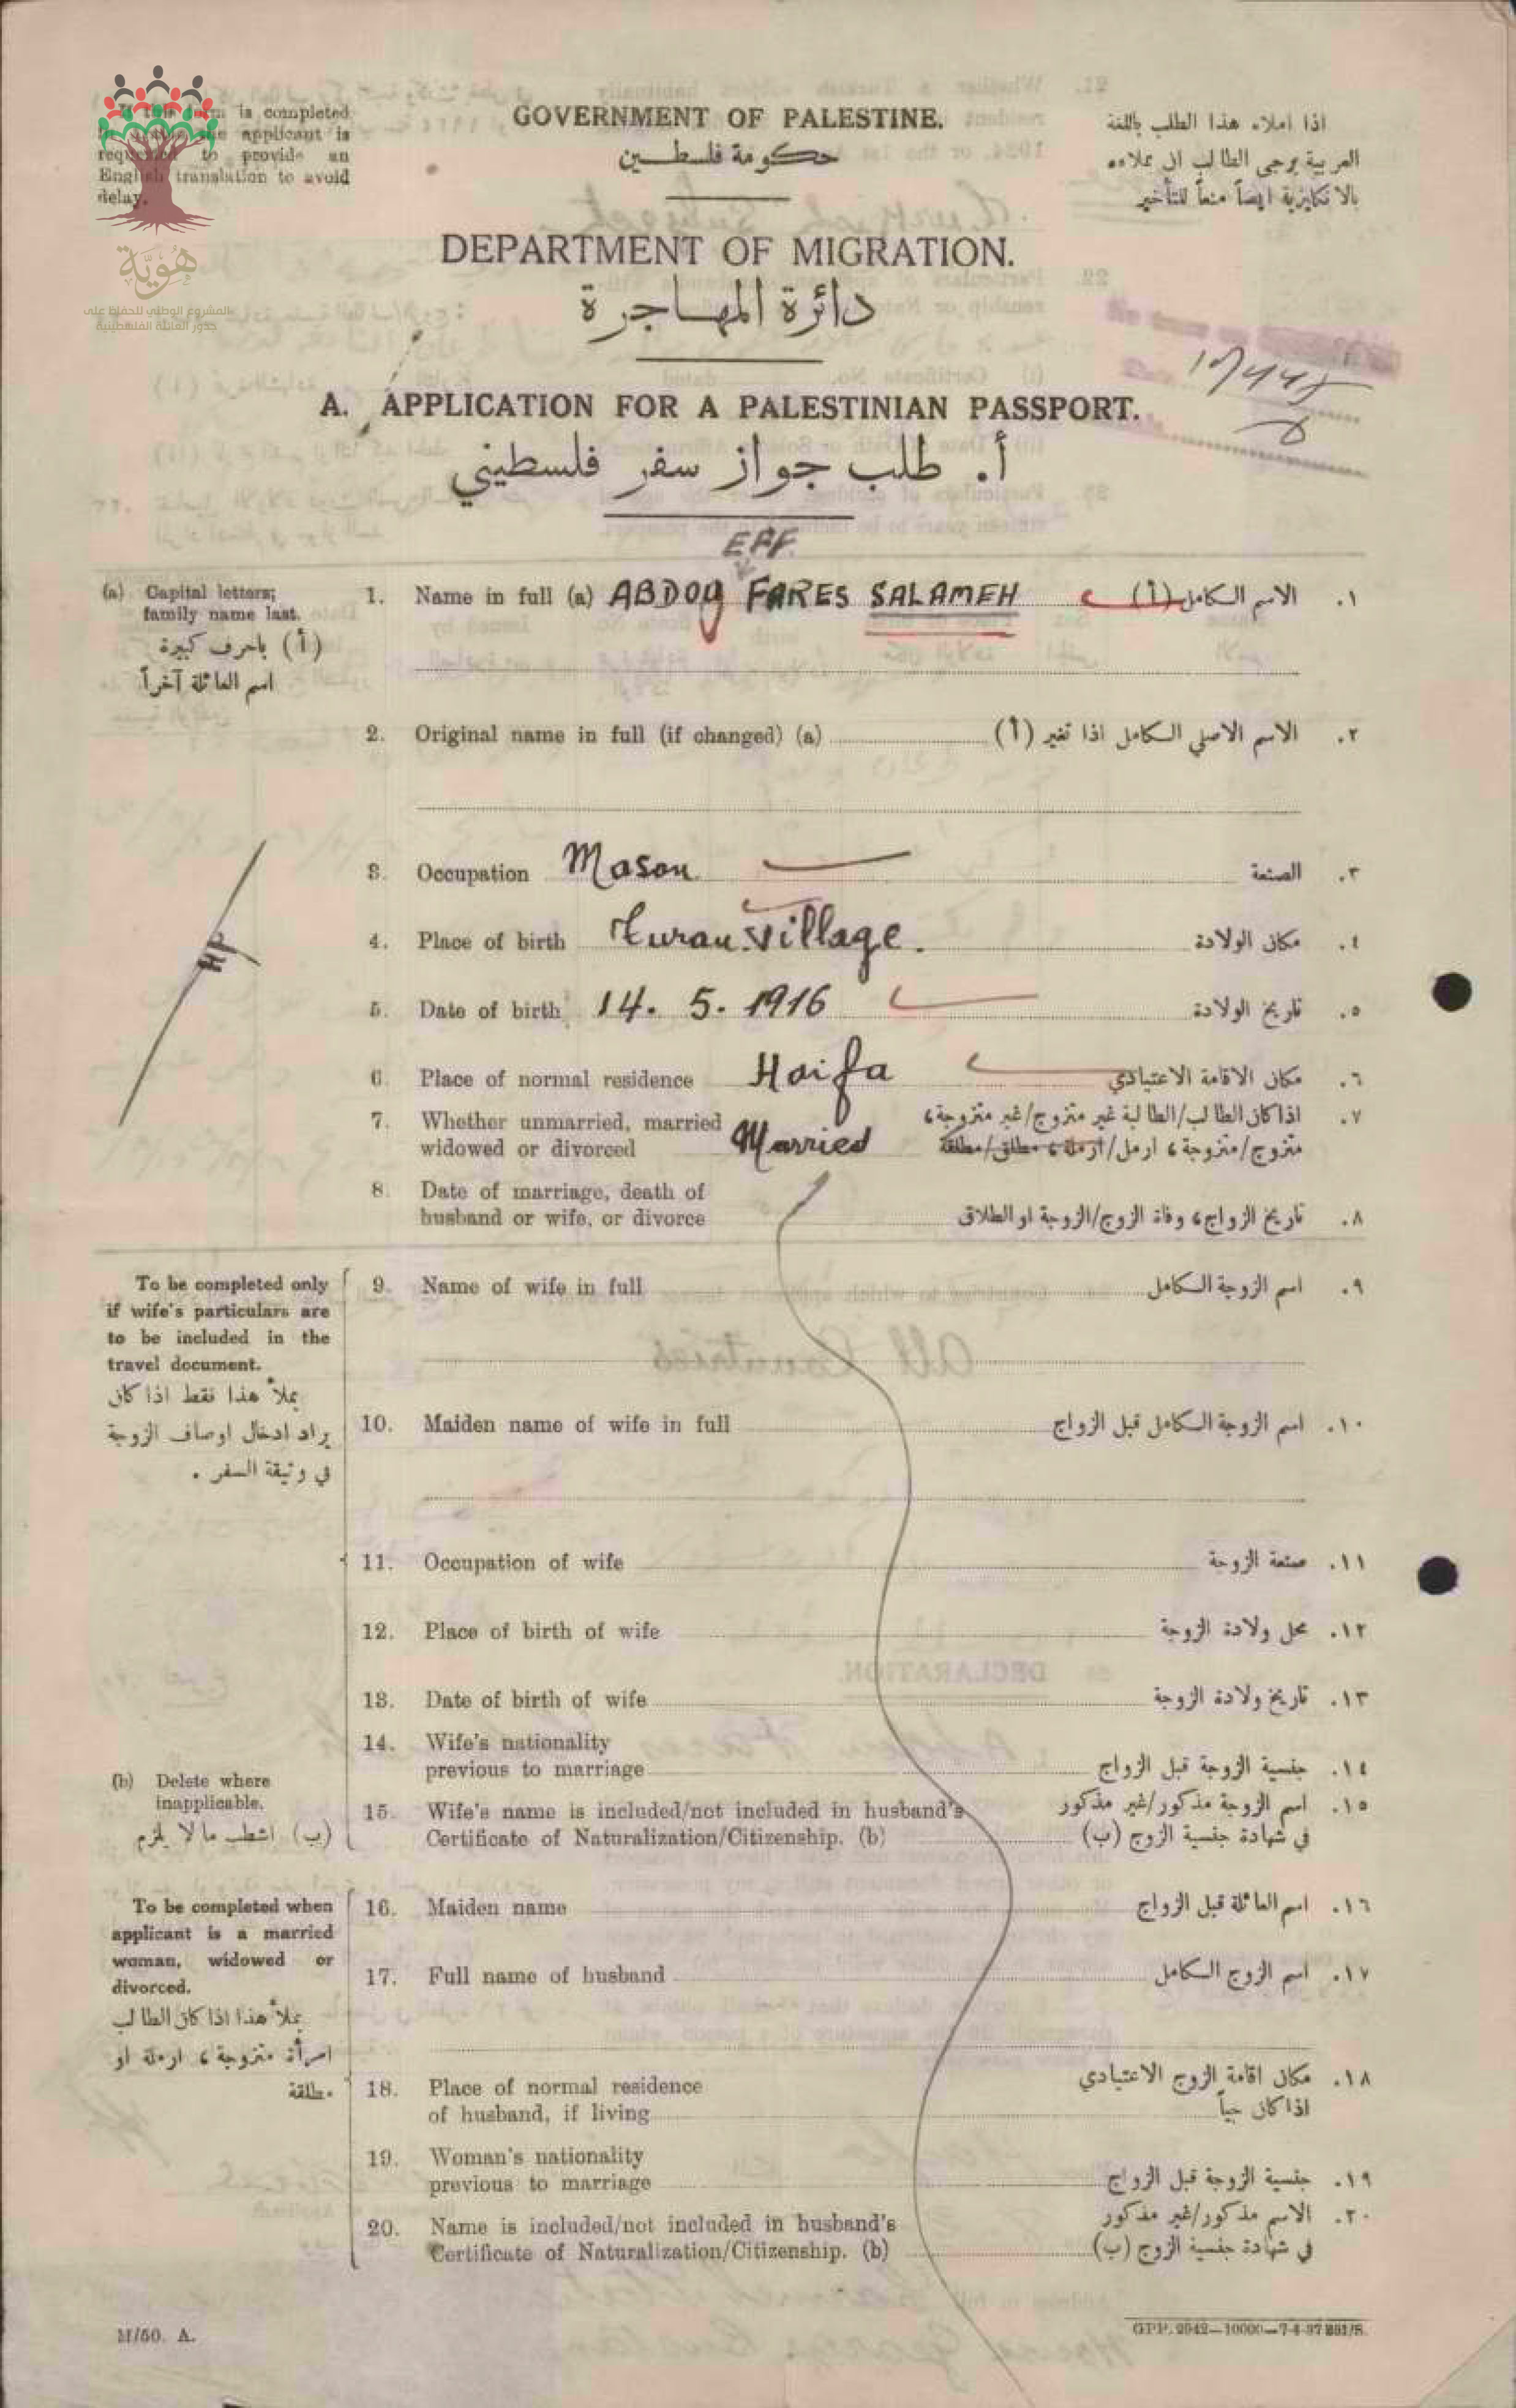 If this form is completed
in Arabic the applicant is
requested to provide an
English translation to avoid
delay.
هوية
المشروع الوطني للحفاظ على
جذور العائلة الفلسطينية
GOVERNMENT OF PALESTINE.
حكومة فلسطين
اذا املاء هذا الطلب باللغة
العربية يرجى الطالب ال بملاءه
بالانكليزية ايضاً منعاً للتأخير
DEPARTMENT OF MIGRATION.
دائرة المهاجرة
A. APPLICATION FOR A PALESTINIAN PASSPORT.
أ. طلب جواز سفر فلسطيني
EFF.
(a) Capital letters;
family name last.
(أ) باحرف كبيرة
اسم العائلة آخراً
1. Name in full (a) ABDOU FARES SALAMEH الاسم الكامل (أ) ١.
2. Original name in full (if changed) (a) الاسم الاصلي الكامل اذا تغير (أ) ٢.
3. Occupation Mason الصنعة ٣.
4. Place of birth Turan Village. مكان الولادة ٤.
5. Date of birth 14. 5. 1916 تاريخ الولادة ٥.
HP
6. Place of normal residence Haifa مكان الاقامة الاعتيادي ٦.
7. Whether unmarried, married
widowed or divorced Married
اذا كان الطالب/الطالبة غير متزوج/غير متزوجة، ٧.
متزوج/متزوجة، ارمل/ارملة، مطلق/مطلقة
8. Date of marriage, death of
husband or wife, or divorce
تاريخ الزواج، وفاة الزوج/الزوجة او الطلاق ٨.
To be completed only
if wife's particulars are
to be included in the
travel document.
يملأ هذا فقط اذا كان
يراد ادخال اوصاف الزوجة
في وثيقة السفر .
9. Name of wife in full اسم الزوجة الكامل ٩.
10. Maiden name of wife in full اسم الزوجة الكامل قبل الزواج ١٠.
11. Occupation of wife صنعة الزوجة ١١.
12. Place of birth of wife محل ولادة الزوجة ١٢.
13. Date of birth of wife تاريخ ولادة الزوجة ١٣.
14. Wife's nationality
previous to marriage جنسية الزوجة قبل الزواج ١٤.
(b) Delete where
inapplicable.
(ب) اشطب ما لا يلزم
15. Wife's name is included/not included in husband's
Certificate of Naturalization/Citizenship. (b)
اسم الزوجة مذكور/غير مذكور ١٥.
في شهادة جنسية الزوج (ب)
To be completed when
applicant is a married
woman, widowed or
divorced.
يملأ هذا اذا كان الطالب
امرأة متزوجة، ارملة او
مطلقة
16. Maiden name اسم العائلة قبل الزواج ١٦.
17. Full name of husband اسم الزوج الكامل ١٧.
18. Place of normal residence
of husband, if living
مكان اقامة الزوج الاعتيادي ١٨.
اذا كان حياً
19. Woman's nationality
previous to marriage جنسية الزوجة قبل الزواج ١٩.
20. Name is included/not included in husband's
Certificate of Naturalization/Citizenship. (b)
الاسم مذكور/غير مذكور ٢٠.
في شهادة جنسية الزوج (ب)
M/50. A.
GPP. 2942—10000—7-4-37